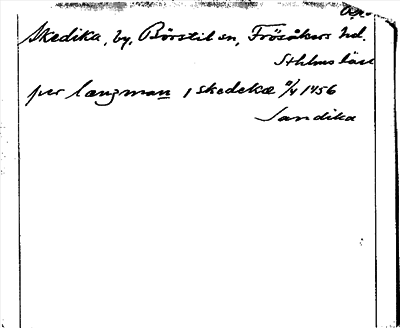 Skedika, by, Börstil sn, Frösåkers hd.
Sthlms län
per langman i skedeka 11/4 1456
Sandika